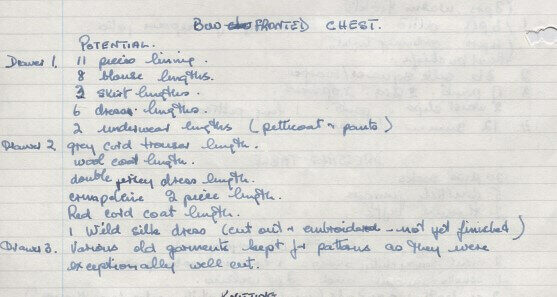 BOW FRONTED CHEST.
POTENTIAL.
Drawer 1. 11 pieces lining.
8 blouse lengths.
2 skirt lengths.
6 dress lengths.
2 underwear lengths (petticoat & pants)
Drawer 2 grey cord trouser length.
wool coat length.
double jersey dress length.
crimpolene 2 piece length.
Red cord coat length.
1 Wild silk dress (cut out & embroidered - not yet finished)
Drawer 3. Various old garments kept for patterns as they were
exceptionally well cut.